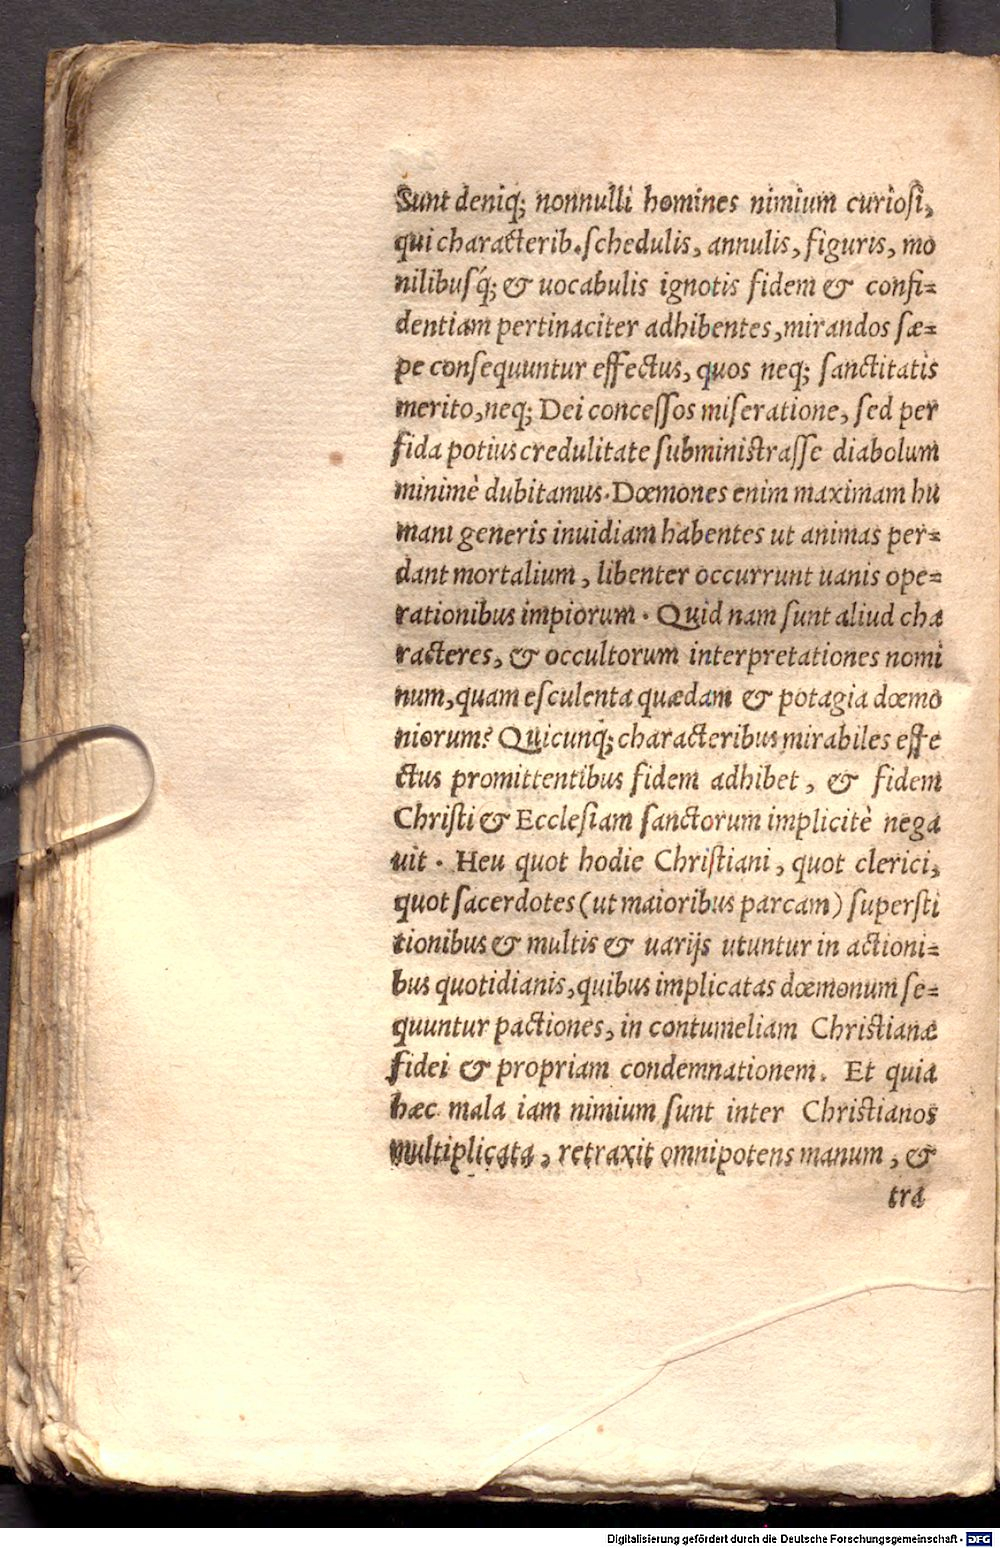 Sunt deniq; nonnulli homines nimium curiosi,
qui characterib. schedulis, annulis, figuris, mo
nilibusq́; & uocabulis ignotis fidem & confi=
dentiam pertinaciter adhibentes, mirandos sæ=
pe consequuntur effectus, quos neq; sanctitatis
merito, neq; Dei concessos miseratione, sed per
fida potius credulitate subministrasse diabolum
minimè dubitamus. Dœmones enim maximam hu
mani generis inuidiam habentes ut animas per=
dant mortalium, libenter occurrunt uanis ope=
rationibus impiorum. Quid nam sunt aliud cha
racteres, & occultorum interpretationes nomi
num, quam esculenta quædam & potagia dœmo
niorum? Quicunq; characteribus mirabiles effe
ctus promittentibus fidem adhibet, & fidem
Christi & Ecclesiam sanctorum implicitè nega
uit. Heu quot hodie Christiani, quot clerici,
quot sacerdotes (ut maioribus parcam) supersti
tionibus & multis & uarijs utuntur in actioni=
bus quotidianis, quibus implicatas dœmonum se=
quuntur pactiones, in contumeliam Christianæ
fidei & propriam condemnationem. Et quia
hæc mala iam nimium sunt inter Christianos
multiplicata, retraxit omnipotens manum, &
tra
Digitalisierung gefördert durch die Deutsche Forschungsgemeinschaft - DFG